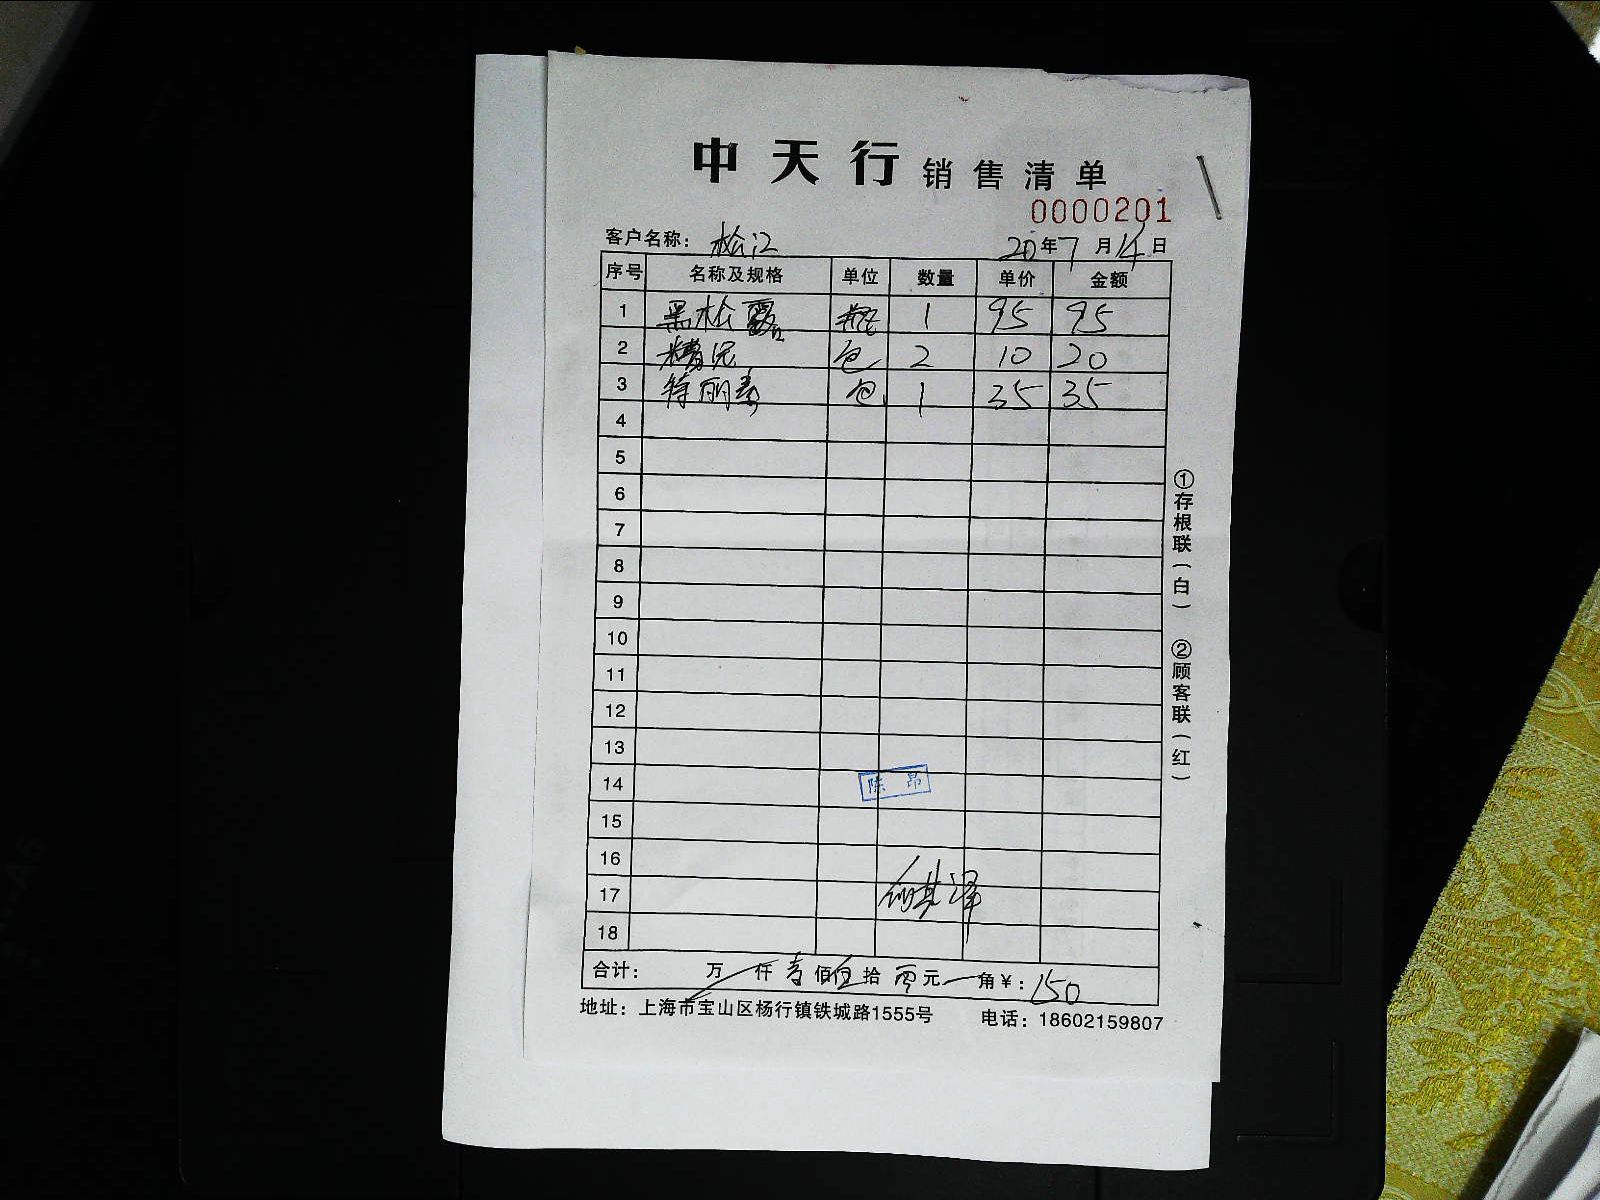 中天行 销售清单
0000201
客户名称: 松江 20年7月14日
序号 名称及规格 单位 数量 单价 金额
1 黑松露 瓶 1 95 95
2 糟泥 包 2 10 20
3 特丽素 包 1 35 35
4
5
6
7
8
9
10
11
12
13
14
15
16
17
18
陈昂
合计: 万 仟 壹佰伍拾零元 角¥:150
地址:上海市宝山区杨行镇铁城路1555号 电话:18602159807
①存根联(白) ②顾客联(红)